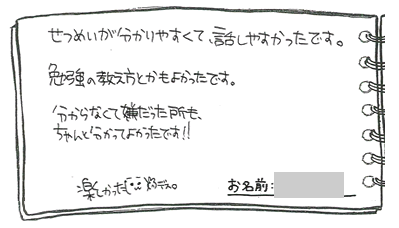 せつめいが分かりやすくて、話しやすかったです。
勉強の教え方とかもよかったです。
分からなくて嫌だった所も、
ちゃんと分かってよかったです!!
楽しかった
お名前: